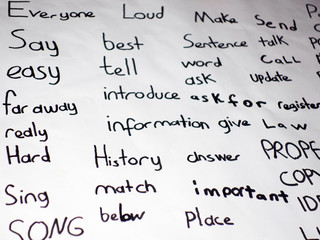 Everyone Loud Make Send
Say best Sentence talk
easy tell word Call
ask update
far away introduce ask for register
realy information give Law
Hard History answer
Sing match important
SONG below Place